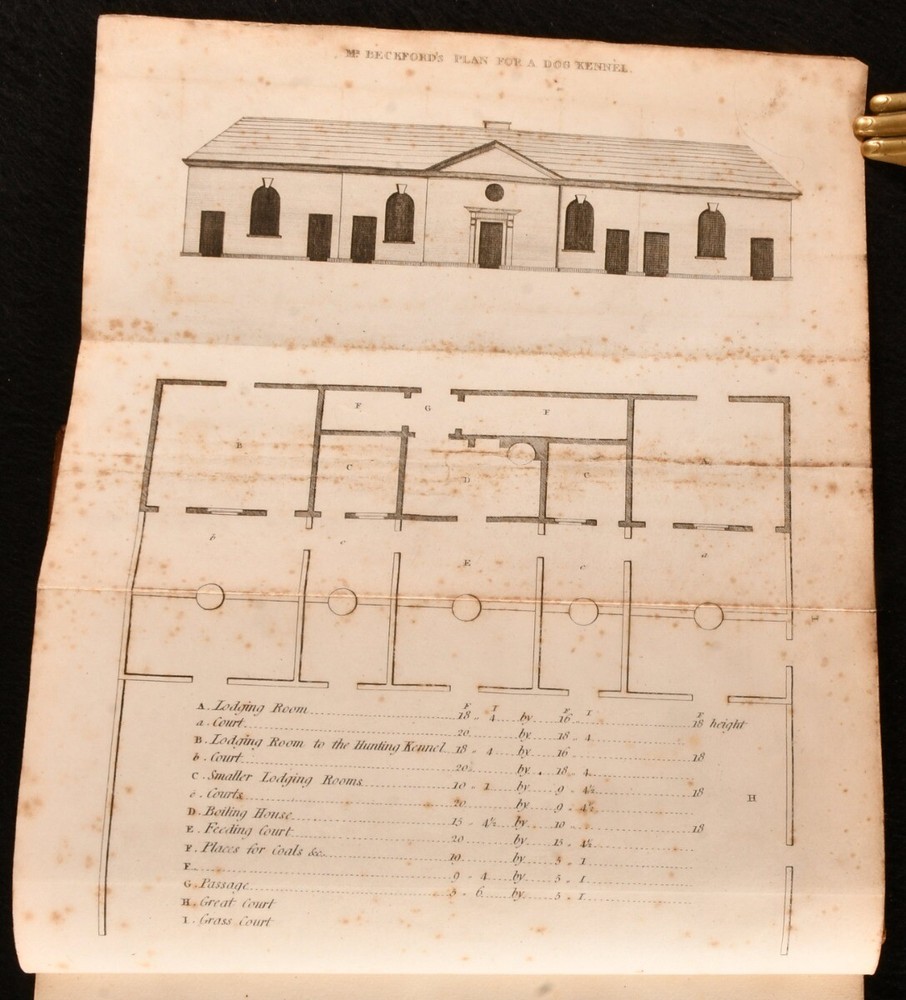 Mr. BECKFORD'S PLAN FOR A DOG KENNEL.
F G F
B C D C A
b c E c a
I
H
F I F I F
A. Lodging Room 18 " 4 by 16 18 height
a. Court 20 by 18 " 4
B. Lodging Room to the Hunting Kennel 18 " 4 by 16 18
b. Court 20 by 18 " 4
C. Smaller Lodging Rooms 10 " 1 by 9 " 4½ 18
c. Courts 20 by 9 " 4½
D. Boiling House 15 " 4½ by 10 18
E. Feeding Court 20 by 15 " 4½
F. Places for Coals &c. 19 by 5 " 1
F. 9 " 4 by 5 " 1
G. Passage 5 " 6 by 5 " 1
H. Great Court
I. Grass Court